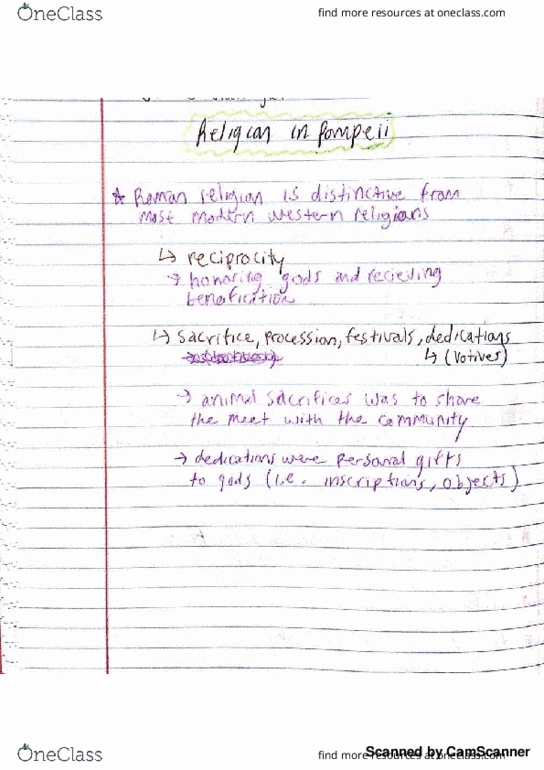 OneClass
find more resources at oneclass.com
Religion in Pompeii
☆ Roman religion is distinctive from
most modern western religions
↳ reciprocity
→ honoring gods and recieving
benefication
↳ sacrifice, procession, festivals, dedications
↳ (votives)
→ animal sacrifices was to share
the meet with the community
→ dedications were personal gifts
to gods (i.e. inscriptions, objects)
OneClass
find more resources at oneclass.com
Scanned by CamScanner